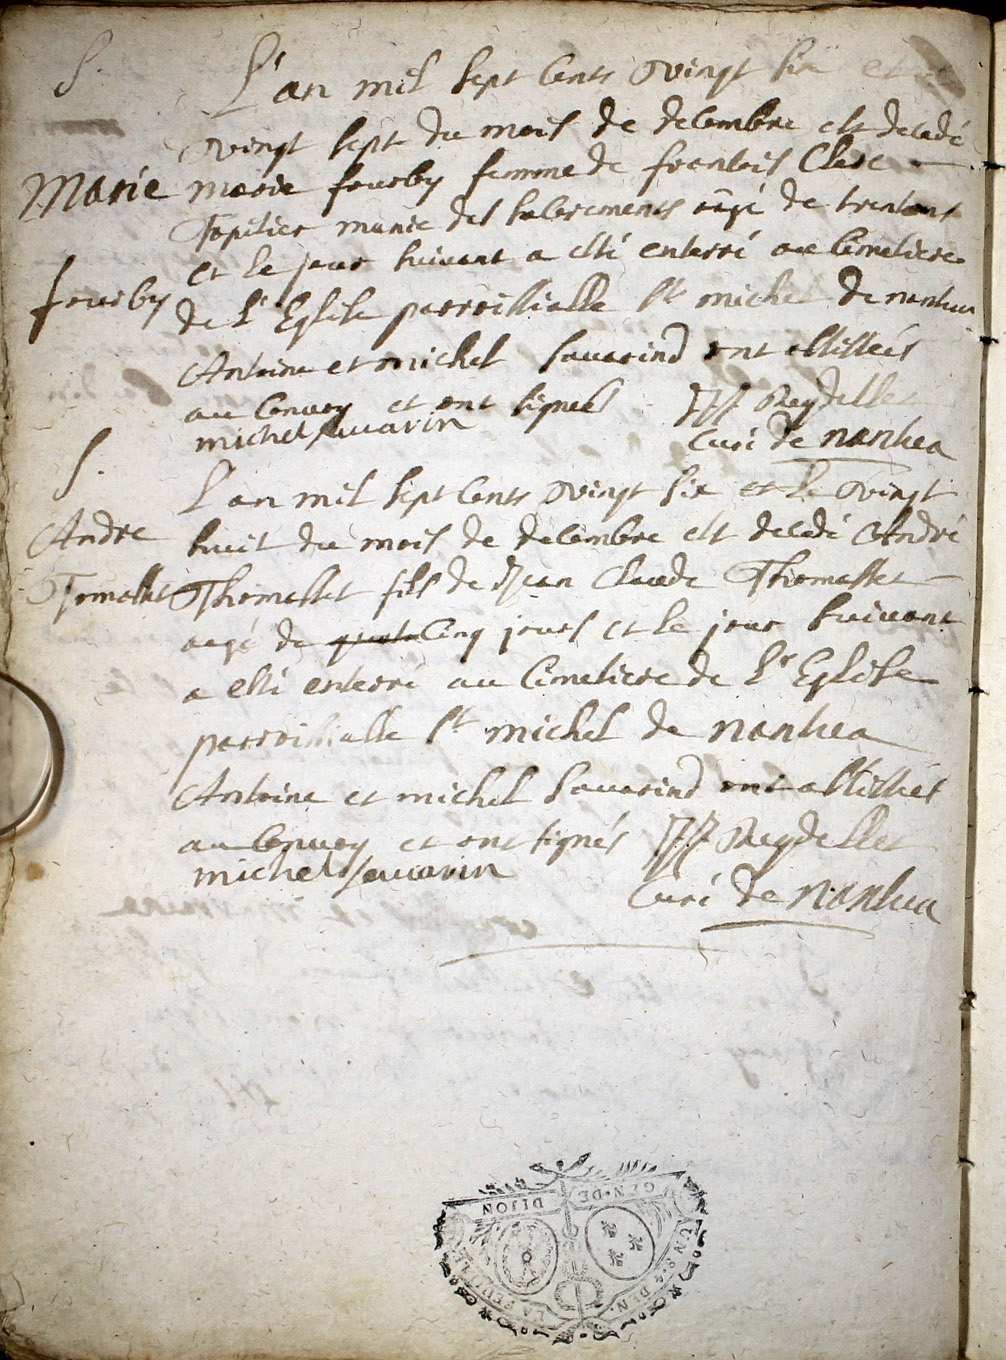 S.
L'an mil sept cents vingt six et le
vingt sept du mois de decembre est decedé
Marie marie fourby femme de francois Clerc
Tapitier munie des sacrements aagé de trente ans
et le jour suivant a esté enterré au cimetiere
fourby
de l'Eglise parroissialle st michel de nantua
Antoine et michel savarind ont assistés
au convoy et ont signés JFF Reydellet
michel savarin
Curé de nantua
S.
L'an mil sept cents vingt six et le vingt
Andre huit du mois de decembre est decedé André
Tomasset Thomasset fils de Jean Claude Thomasset
aagé de cinq jours et le jour suivant
a esté enterré au cimetiere de l'Eglise
parroissialle st michel de nantua
Antoine et michel savarind ont assistés
au convoy et ont signés JFF Reydellet
michel savarin
Curé de nantua
GEN. DE DIJON
UN S. 4 DEN. LA FEUILLE